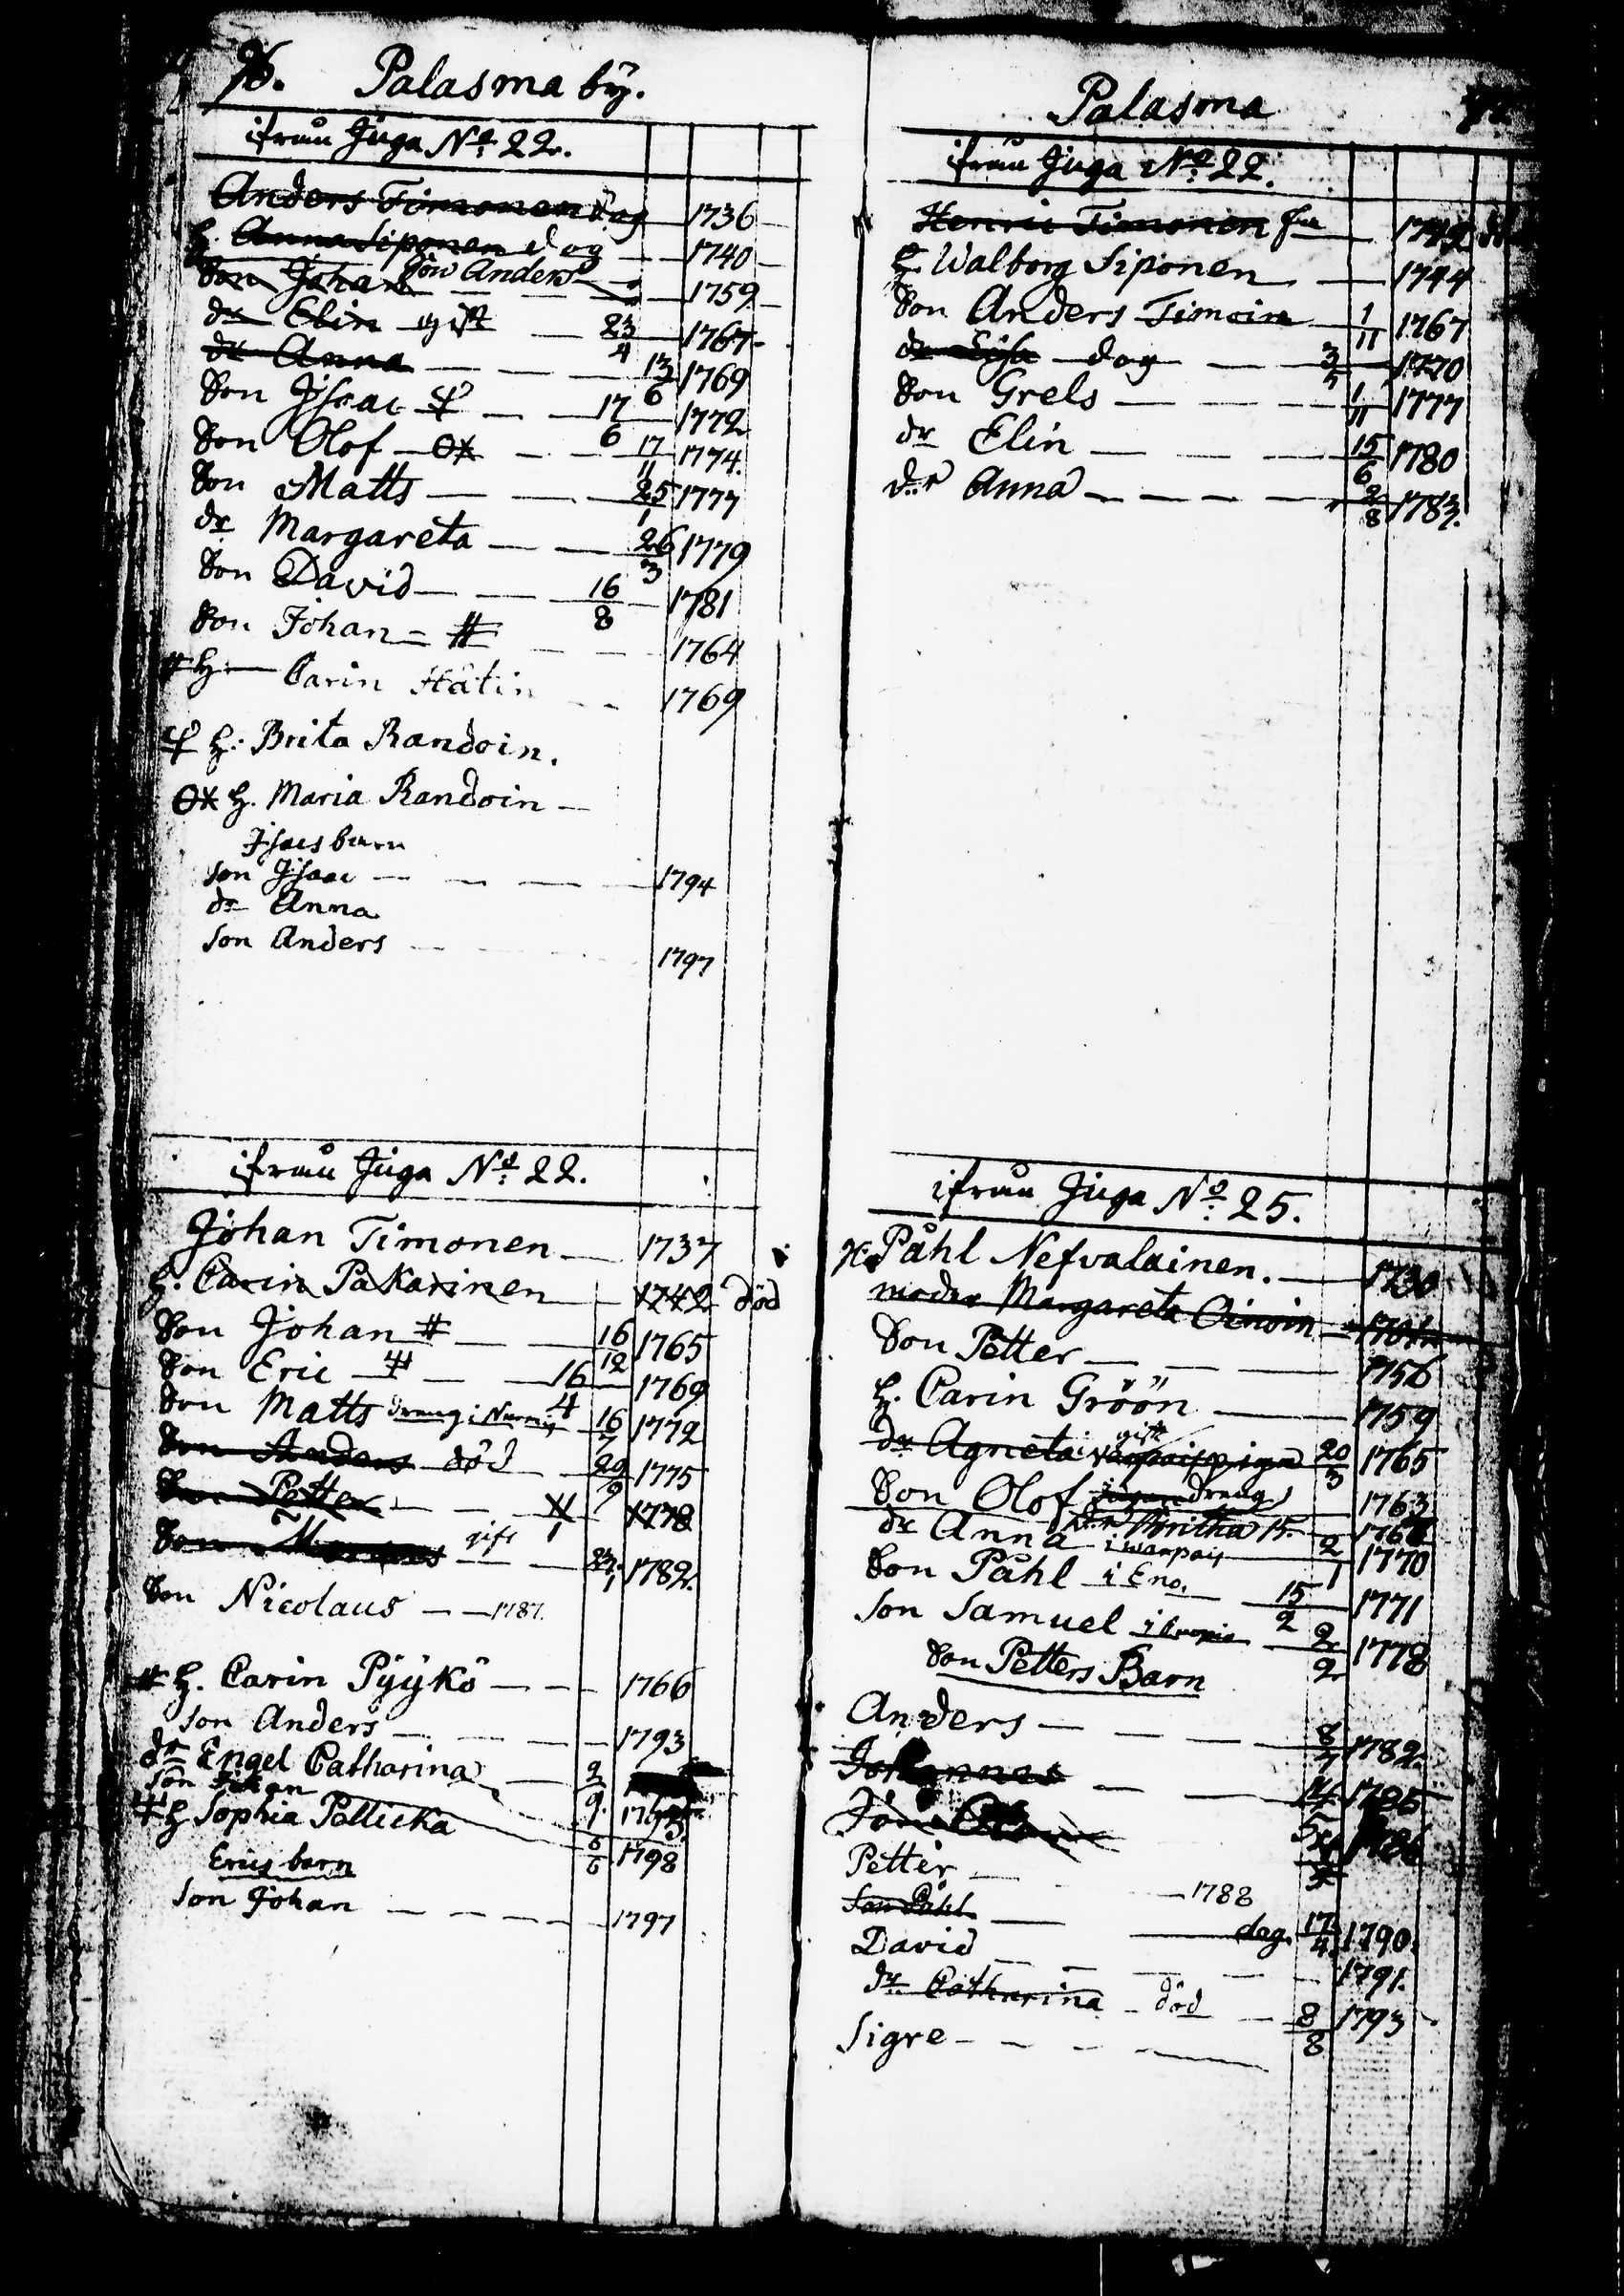 96. Palasma by.
ifrån Juga No 22.
Anders Timonen dog 1736
h. Anna Siponen dog 1740
Son Johan Son Anders 1759
dr Elin gift 23/4 1767
dr Anna 13/6 1769
Son Isaac 17/6 1772
Son Olof 17/11 1774.
Son Matts 25/1 1777
dr Margareta 26/3 1779
Son David 16/8 1781
Son Johan # 1764
# h. Carin Hätin 1769
h. Brita Randoin.
h. Maria Randoin
Isacs barn
Son Isaac 1794
dr Anna
Son Anders 1797
ifrån Juga No 22.
Johan Timonen 1737
h. Carin Pakarinen 1742 död
Son Johan # 16/12 1765
Son Eric 16/4 1769
Son Matts dräng i 16/7 1772
Son Anders död 29/9 1775
Son Petter 1778
Son gift 1782.
Son Nicolaus 1787.
# h. Carin Pÿÿkö 1766
Son Anders 1793
dr Engel Catharina 2/9
Son Johan 6/6 1798
h Sophia Pellicka
Erics barn
Son Johan 1797
Palasma
ifrån Juga No 22.
Henric Timonen
h. Walborg Siponen 1744
Son Anders Timoin 1/11 1767
dr dog 1770
Son Grels 1/11 1777
dr Elin 15/6 1780
dr Anna 2/8 1783.
ifrån Juga No 25.
Påhl Nefvalainen. 1730
moder Margareta
Son Petter 1756
h. Carin Gröön 1759
dr Agneta gift 20/3 1765
Son Olof dräng 1763
dr Britha 15
dr Anna 2/1 1770
Son Påhl i Eno. 15/2 1771
Son Samuel 2/2 1778
Son Petters Barn
Anders 8/7 1782.
Johannes 1785
Petter 1788
Son Påhl dog. 17/4 1790.
David 1791.
dr Catharina död 8/8 1793
Sigre